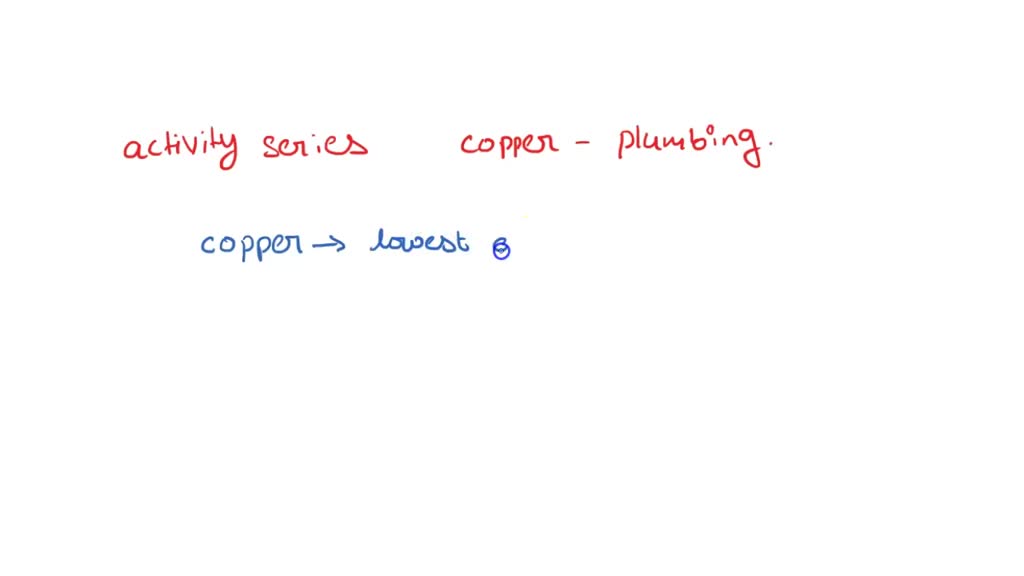 activity series copper - plumbing.
copper → lowest